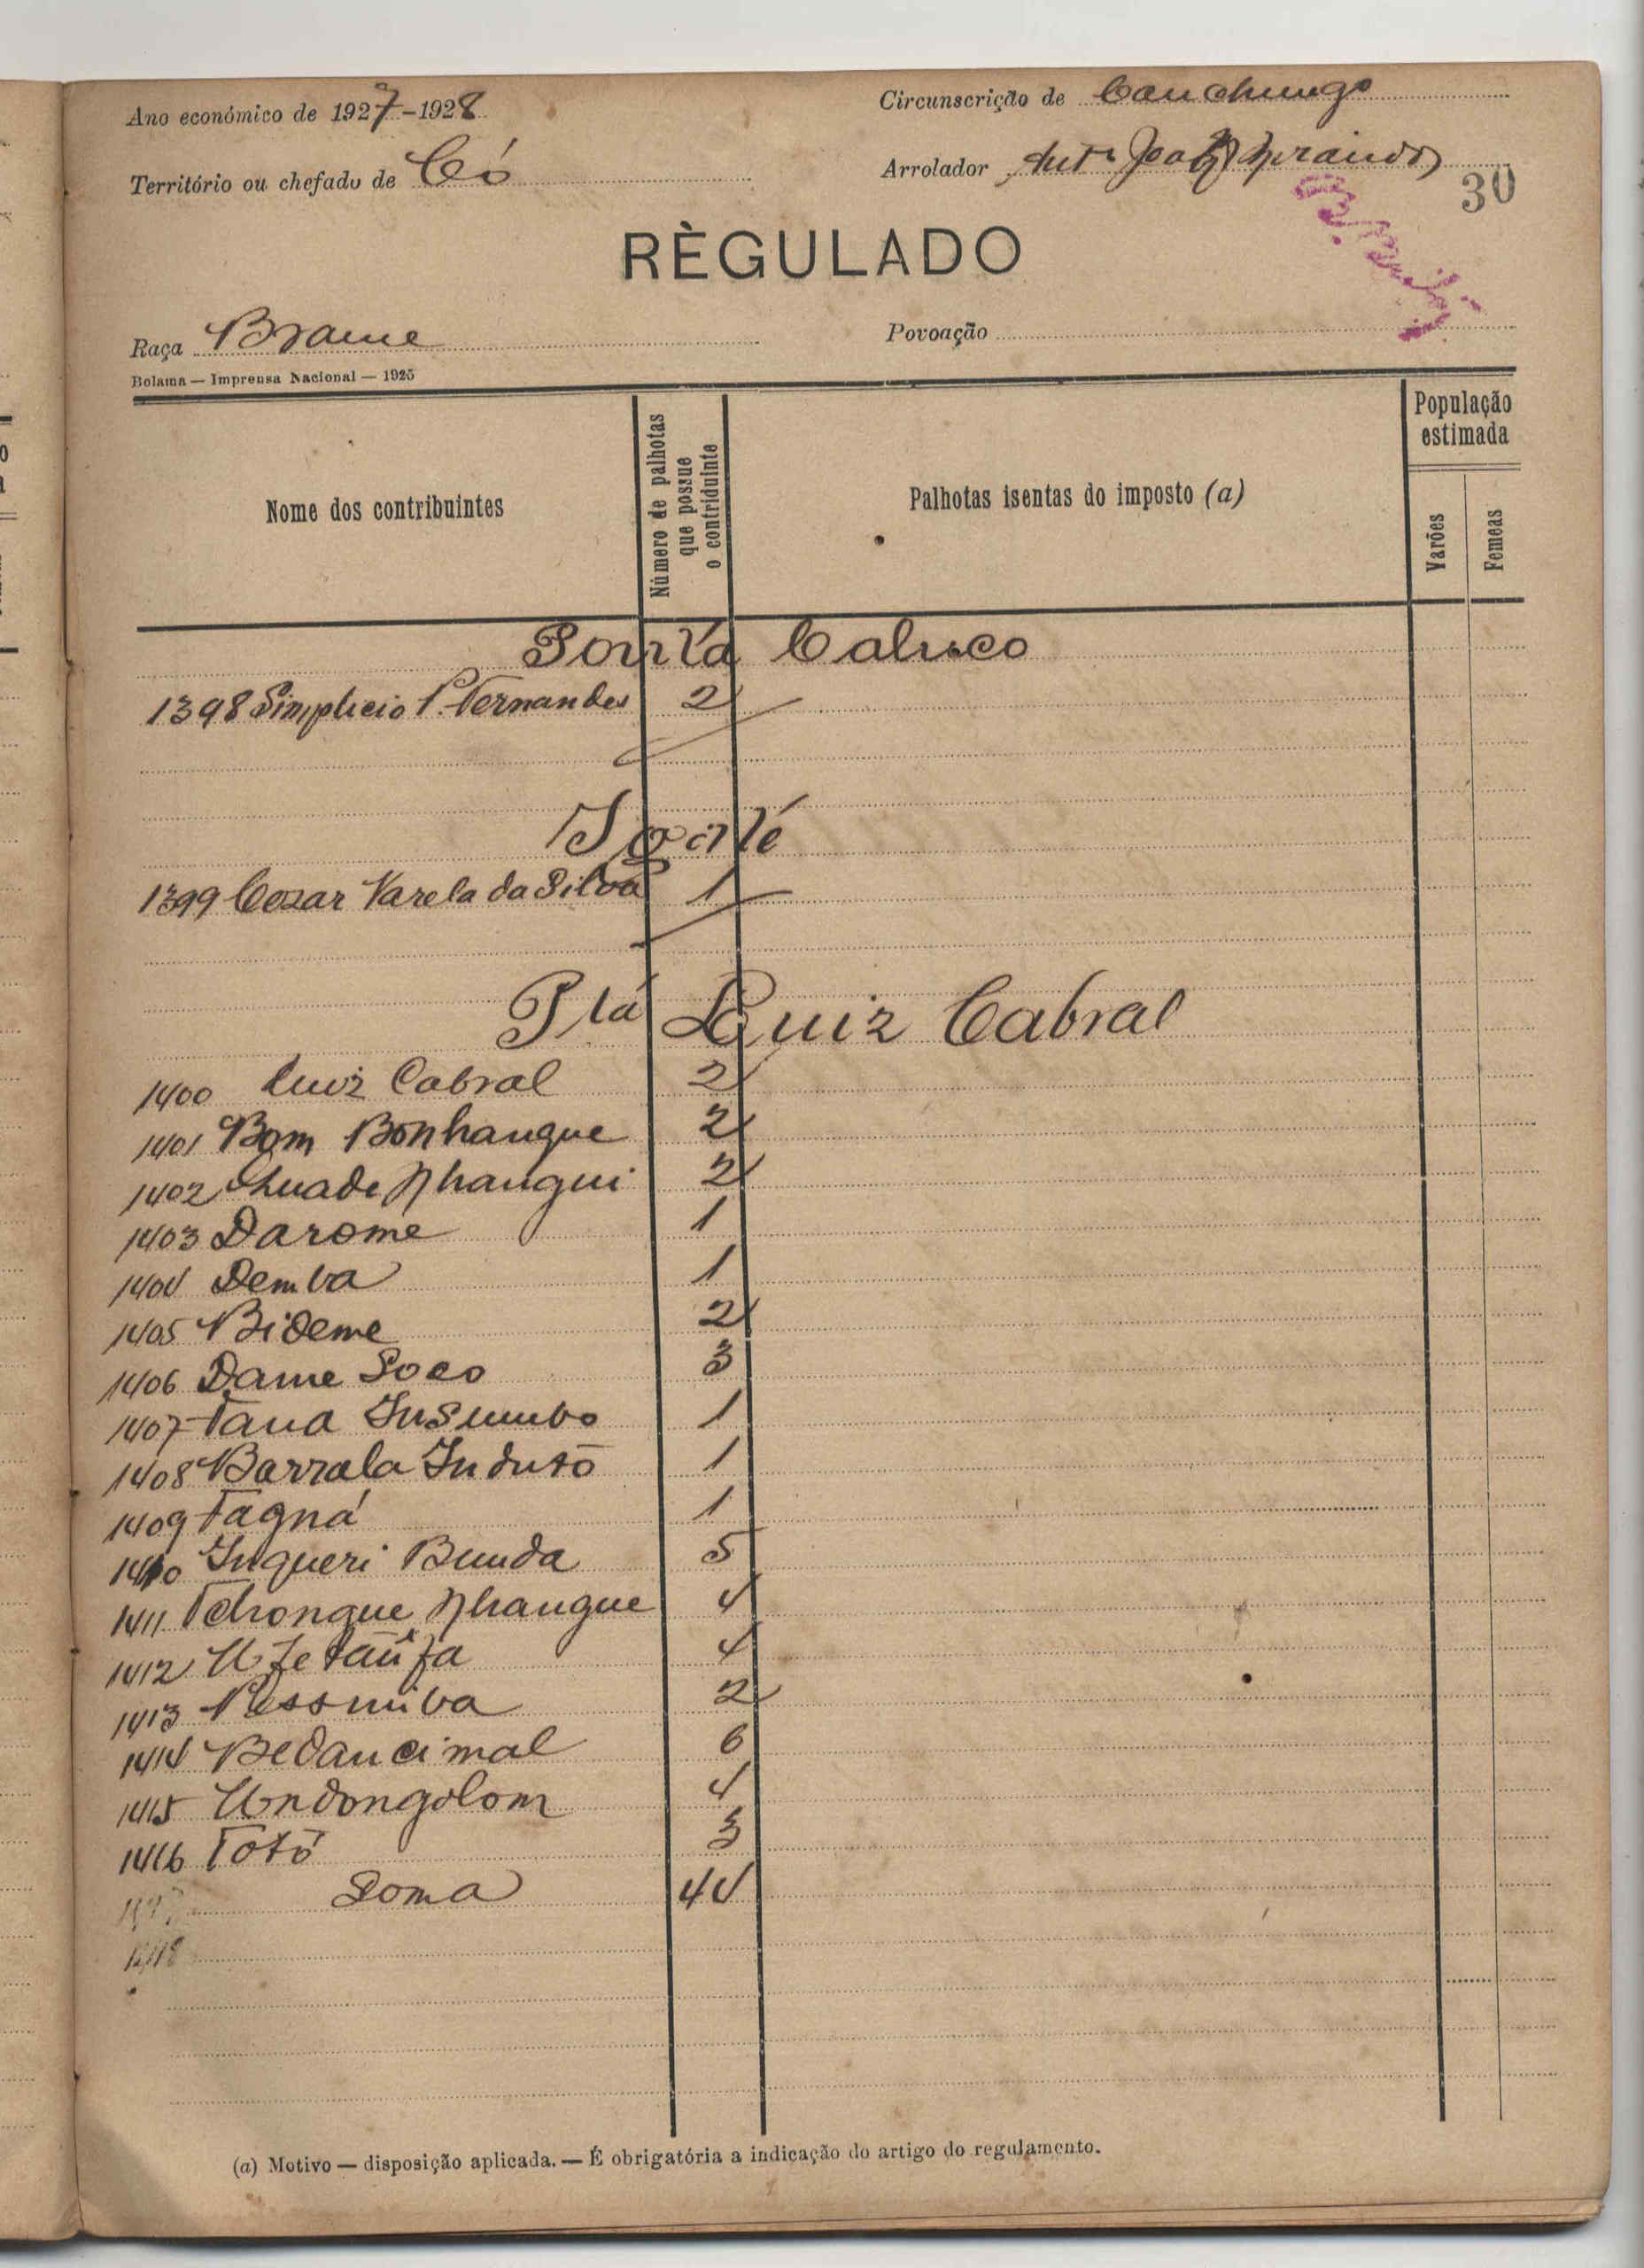 Ano económico de 1927-1928
Circunscrição de Canchungo
Território ou chefado de Có
Arrolador
30
RÈGULADO
Raça Brame
Povoação
Bolama — Imprensa Nacional — 1925
Nome dos contribuintes
Número de palhotas que possue o contriduinte
Palhotas isentas do imposto (a)
População estimada
Varões
Femeas
Ponta
1398 Simplicio P. Fernandes 2
1399 Cezar Varela da Silva 1
Pta Luiz Cabral
1400 Luiz Cabral 2
1401 Bom Bonhangue 2
1402 Nhangui 2
1403 Darome 1
1404 Demba 1
1405 Bideme 2
1406 Dame Soco 3
1407 Tana Insumbo 1
1408 Barrala Indutó 1
1409 Tagná 1
1410 Ingueri Bunda 5
1411 Tchongue Nhangue 4
1412 4
1413 2
1414 Bedancimal 6
1415 Undongolom 4
1416 Totó 3
1417 Soma 44
1418
(a) Motivo — disposição aplicada. — É obrigatória a indicação do artigo do regulamento.